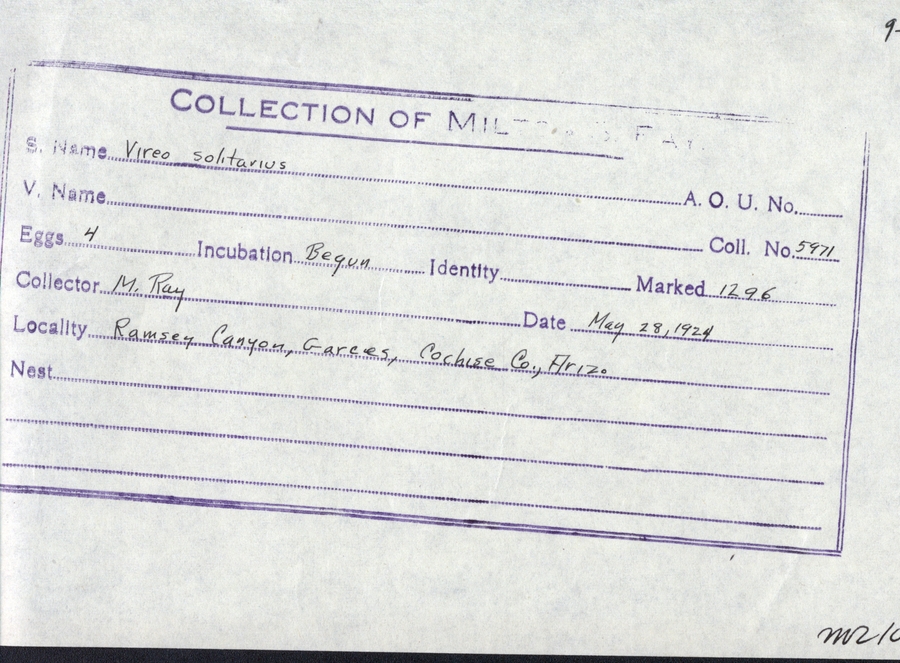 9-
COLLECTION OF MIL
S. Name Vireo solitarius
A. O. U. No.
V. Name
Coll. No. 5971
Eggs 4 Incubation Begun Identity Marked 1296
Collector M. Ray Date May 28, 1924
Locality Ramsey Canyon, Garces, Cochise Co., Ariz.
Nest